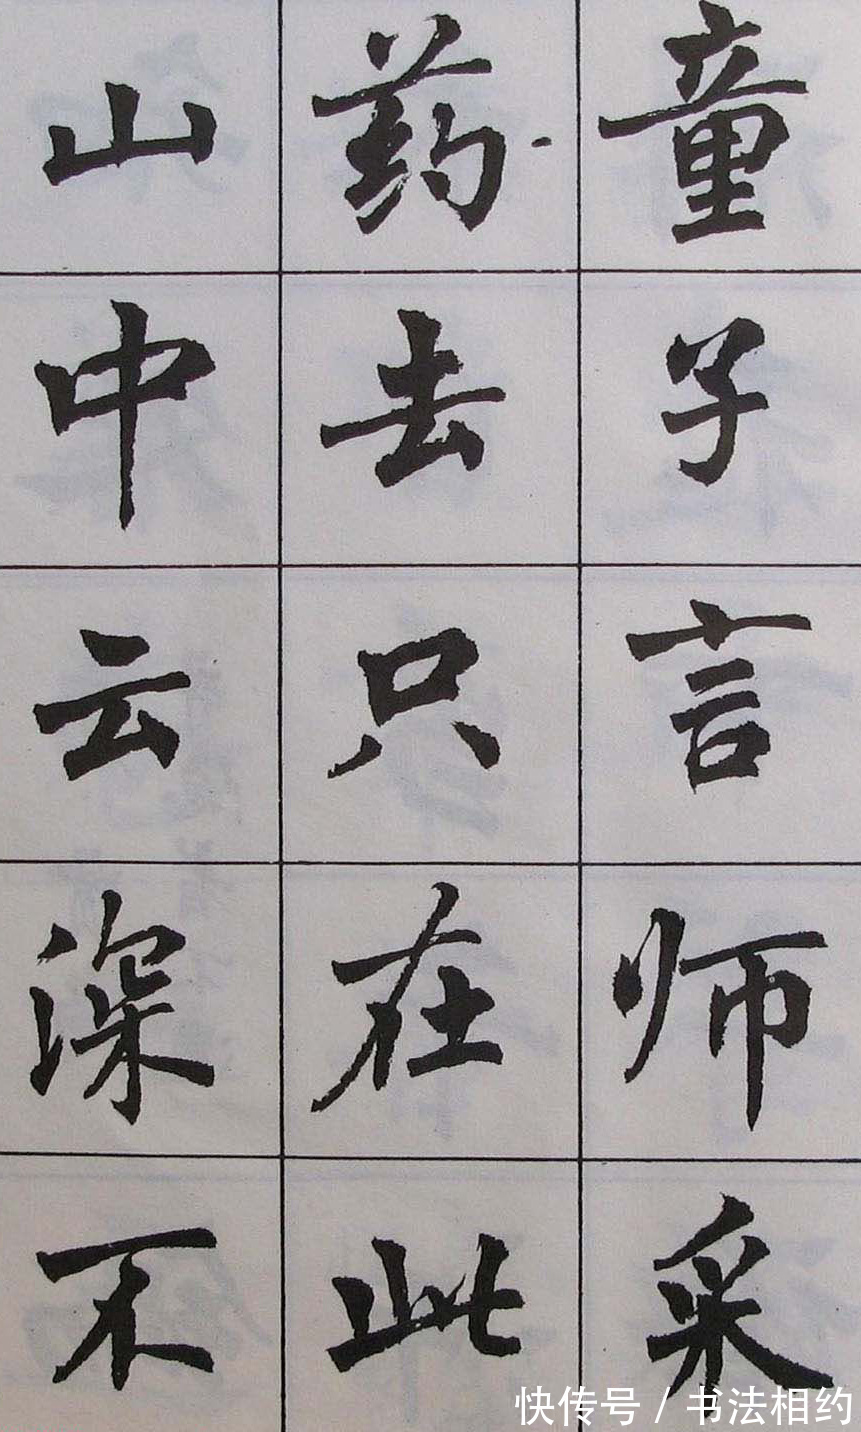 童子言师采
药去只在此
山中云深不
快传号/书法相约